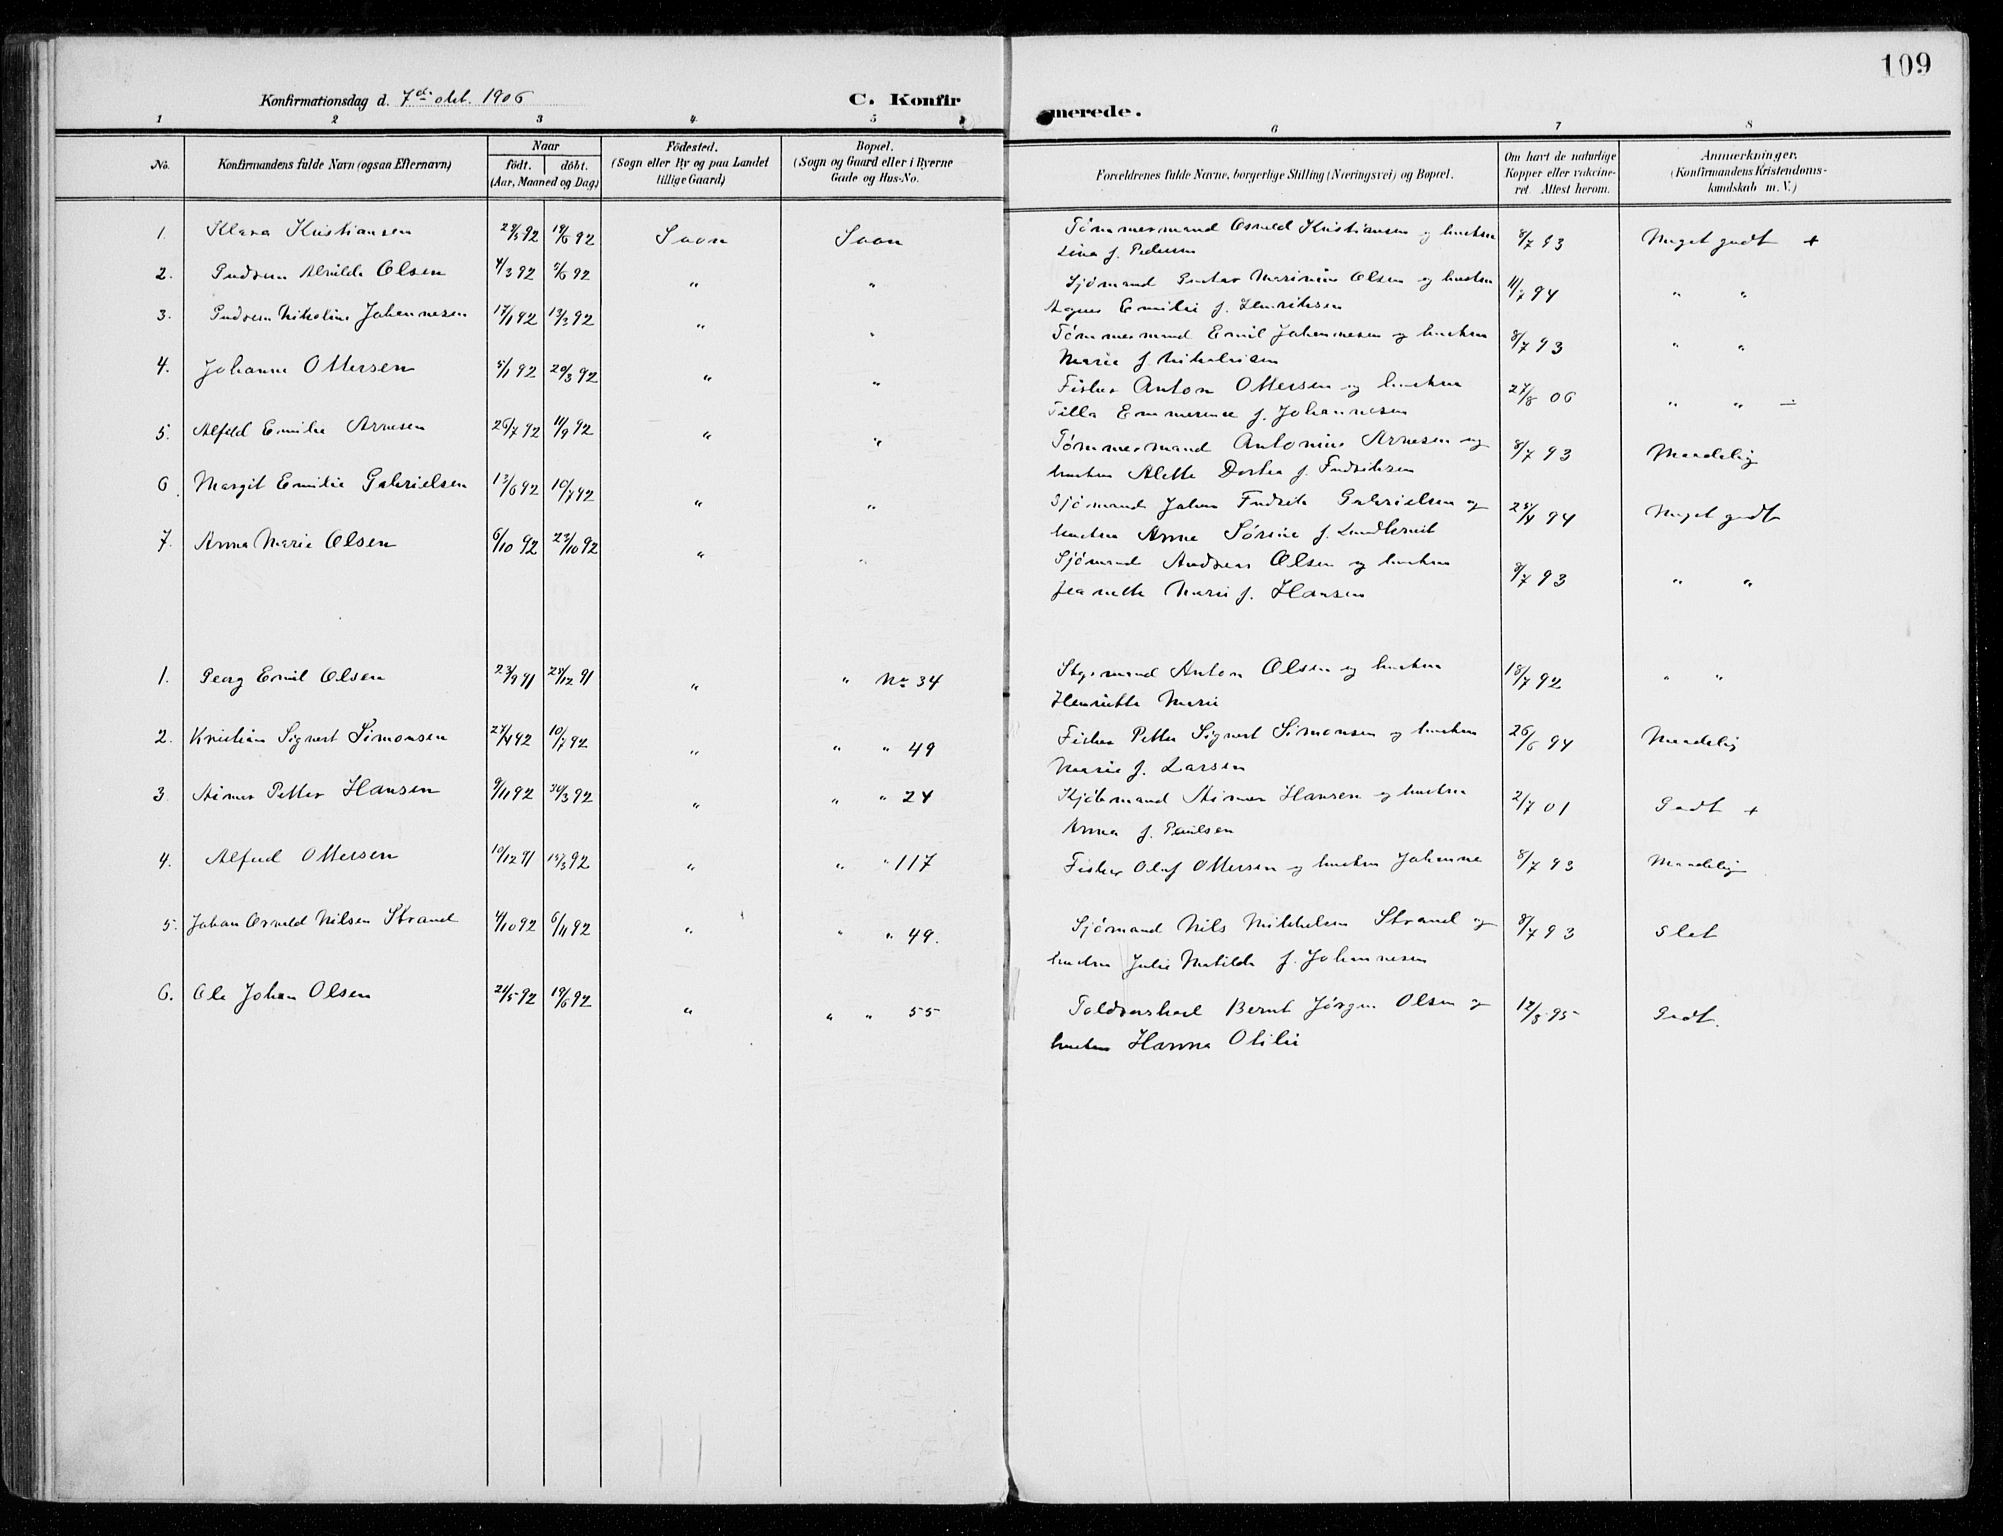 109
Konfirmationsdag d. 7de okt. 1906 C. Konfir merede.
1 2 3 4 5 6 7 8
No. Konfirmandens fulde Navn (ogsaa Efternavn) Naar Födested. Bopæl. Forældrenes fulde Navne, borgerlige Stilling (Næringsvei) og Bopæl. Om havt de naturlige Anmærkninger.
födt. döbt. (Sogn eller By og paa Landet (Sogn og Gaard eller i Byerne Kopper eller vakcine- (Konfirmandens Kristendoms-
(Aar, Maaned og Dag) tillige Gaard) Gade og Hus-No. ret Attest herom. kundskab m. V.)
1. Klara Kristiansen 29/3 92 19/6 92 Soon Soon Tømmermand Osvald Kristiansen og hustru 8/7 93 Meget godt +
Lina f. Pedersen
2. Gudrun Alvilda Olsen 4/3 92 5/6 92 " " Sjömand Gustav Marinius Olsen og hustru 11/7 94 " "
Agnes Emilie f. Henriksen
3. Gudrun Nikoline Johannesen 17/1 92 13/3 92 " " Tømmermand Emil Johannesen og hustru 8/7 93 " "
Marie f. Nikolaisen
4. Johanne Ottersen 5/1 92 20/3 92 " " Fisker Anton Ottersen og hustru 27/8 06 " " ÷
Tilla Emmerence f. Johannesen
5. Alfild Emilie Arnesen 26/7 92 11/9 92 " " Tømmermand Antonius Arnesen og 8/7 93 Maadelig
hustru Alette Dortea f. Fredriksen
6. Margit Emilie Gabrielsen 13/6 92 10/7 92 " " Sjömand Johan Fredrik Gabrielsen og 28/4 94 Meget godt
hustru Anna Sørine f.
7. Anna Marie Olsen 6/10 92 23/10 92 " " Sjömand Andreas Olsen og hustru 8/7 93 " "
Jeanette Marie f. Hansen
1. Georg Emil Olsen 23/9 91 28/12 91 " " No 34 Anton Olsen og hustru 18/7 92 " "
Henriette Marie
2. Kristian Sigvart Simonsen 27/4 92 10/7 92 " " " 49 Fisker Petter Sigvart Simonsen og hustru 26/6 94 Maadelig
Marie f. Larsen
3 Aimar Petter Hansen 9/11 92 " " " 24 Kjöbmand Aimar Hansen og hustru 2/7 01 Godt +
Anna f. Paulsen
4. Alfred Ottersen 10/12 91 15/3 92 " " " 117 Fisker Olaf Ottersen og hustru Johanne 8/7 93 Maadelig
5. Johan Osvald Nilsen Strand 4/10 92 6/11 92 " " " 49. Sjömand Nils Mikkelsen Strand og 8/7 93 Slet
hustru Julie Matilde f. Johannesen
6. Ole Johan Olsen 24/5 92 19/6 92 " " " 55 Bernt Jörgen Olsen og 12/3 95 Godt.
hustru Hanna Otilie